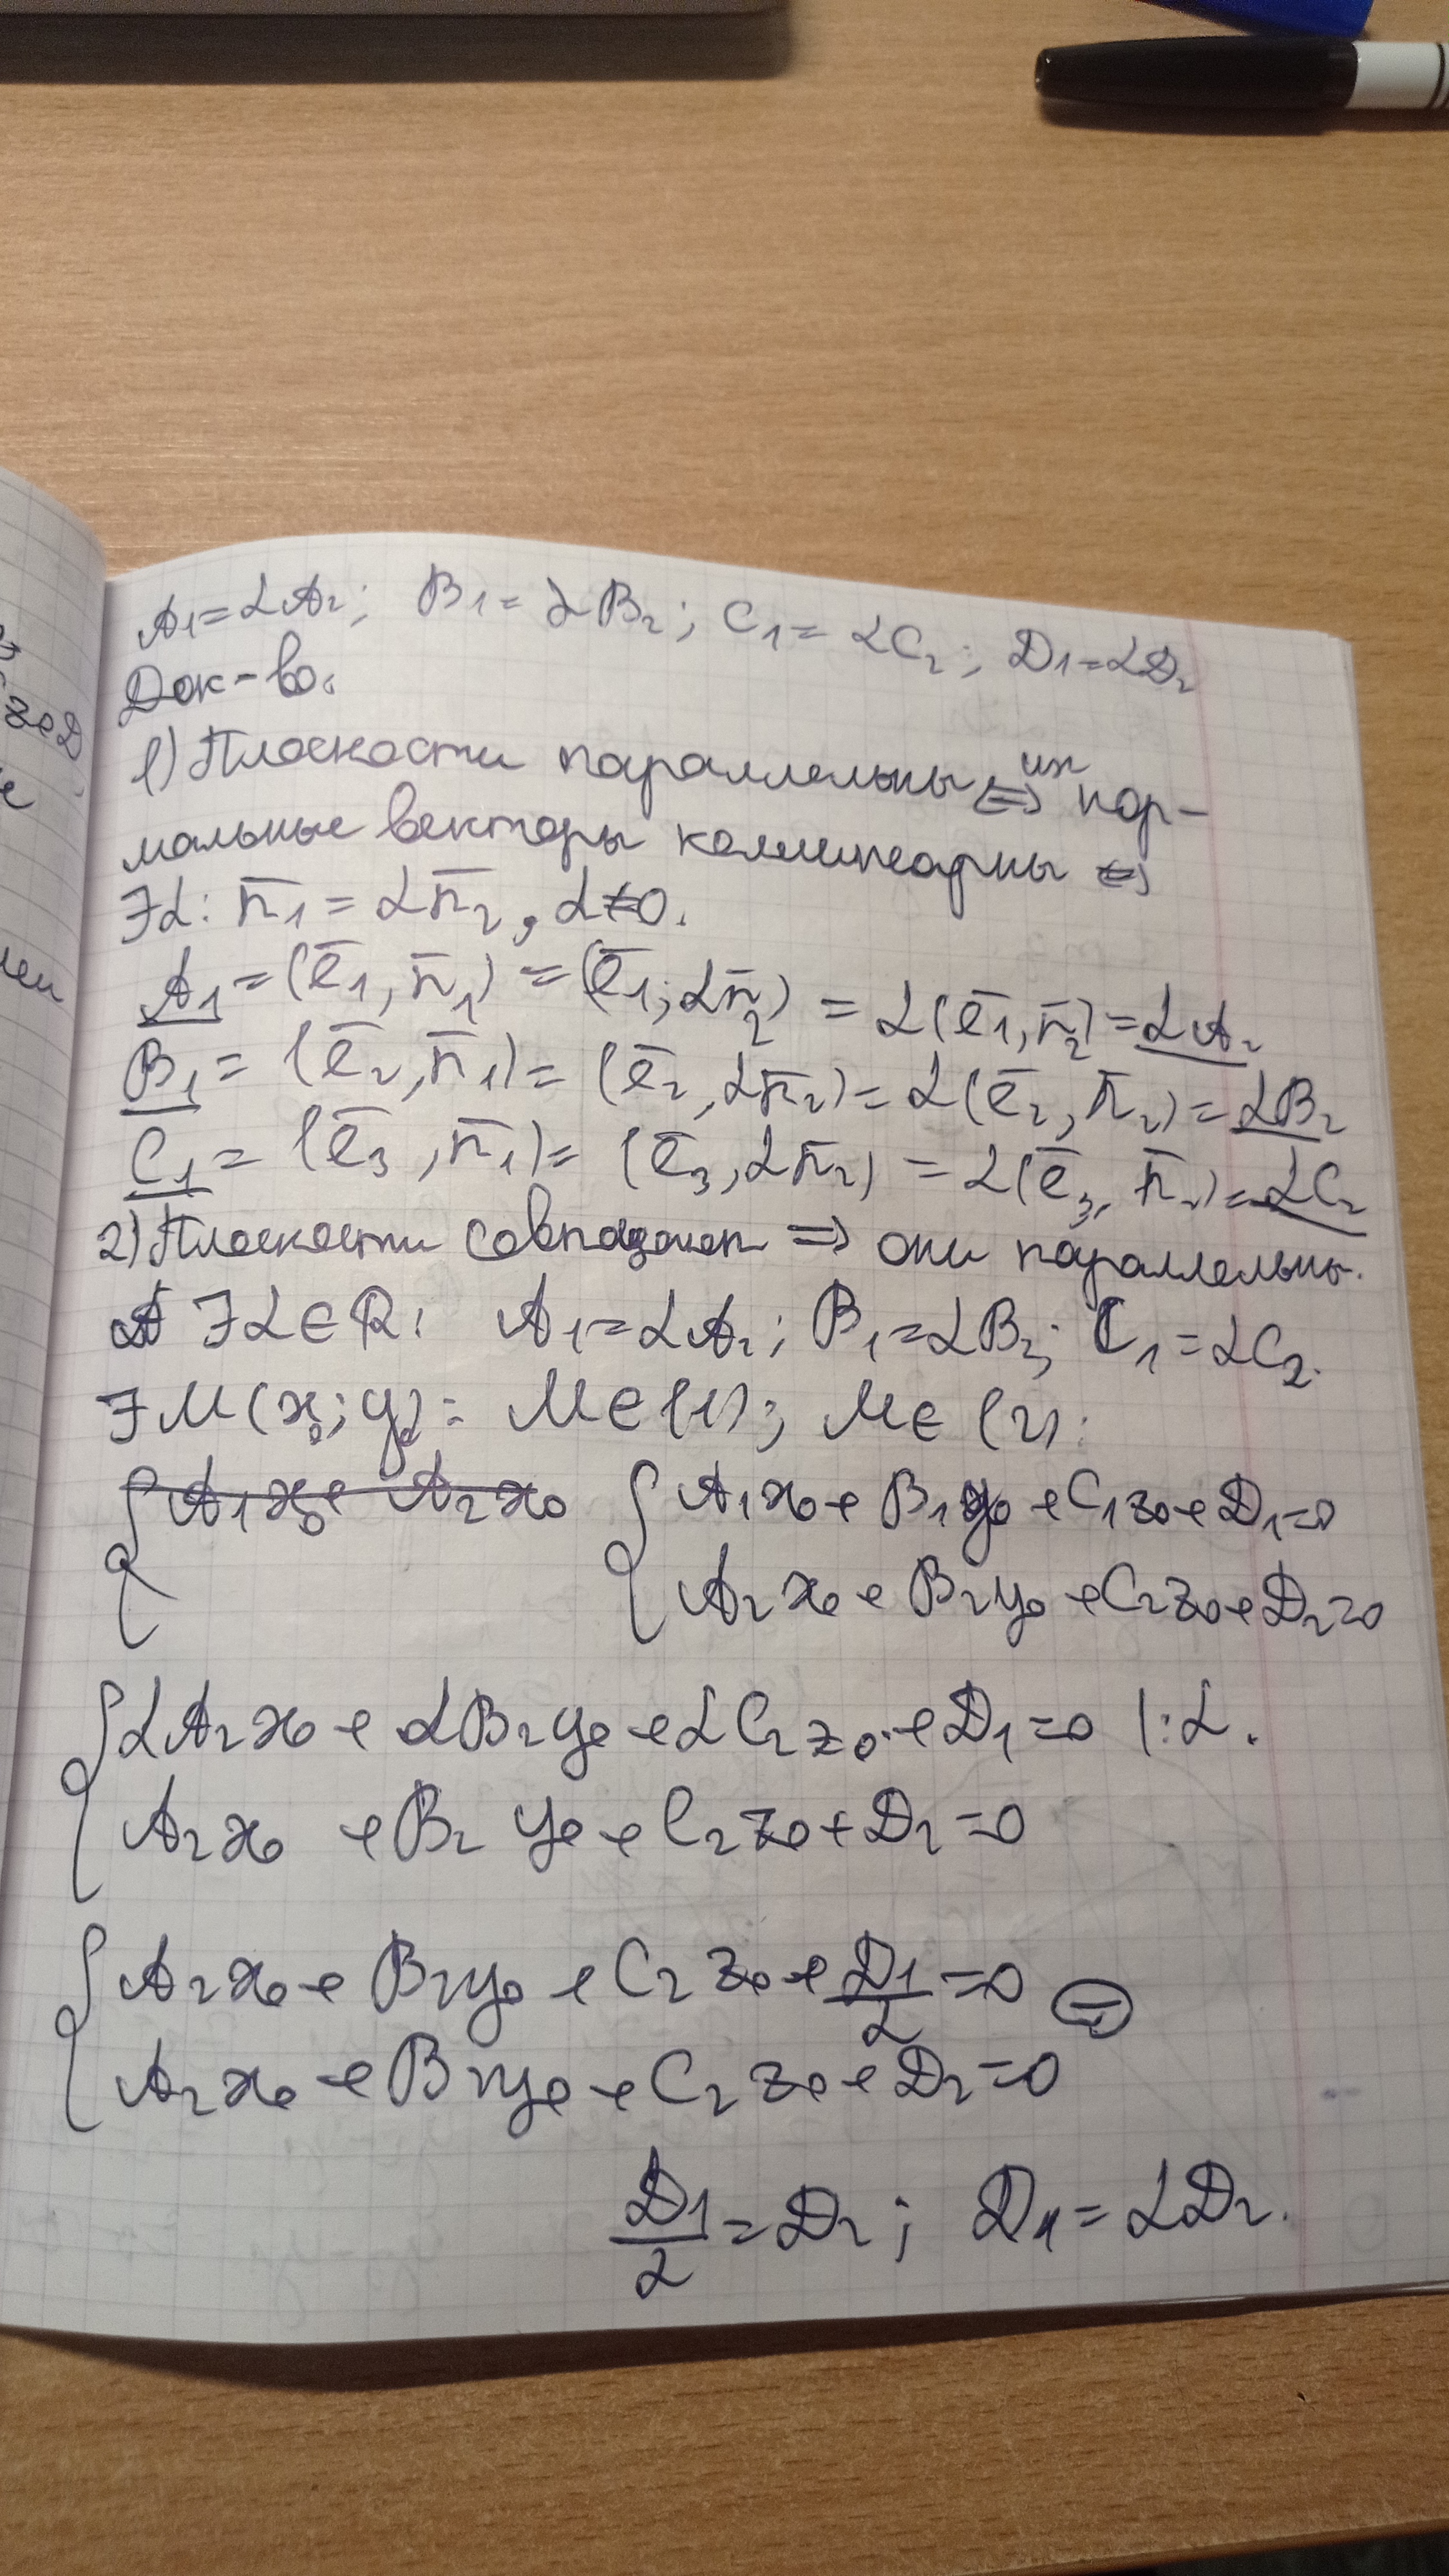 A₁=αA₂; B₁=αB₂; C₁=αC₂; D₁=αD₂
Док-во.
1) Плоскости параллельны ⇔ их нор-
мальные векторы коллинеарны ⇔
∃α: n̄₁ = αn̄₂, α≠0.
A₁ = (ē₁, n̄₁) = (ē₁; αn̄₂) = α(ē₁, n̄₂) = αA₂
B₁ = (ē₂, n̄₁) = (ē₂, αn̄₂) = α(ē₂, n̄₂) = αB₂
C₁ = (ē₃, n̄₁) = (ē₃, αn̄₂) = α(ē₃, n̄₂) = αC₂
2) Плоскости совпадают ⇒ они параллельны.
∃α∈R: A₁=αA₂; B₁=αB₂; C₁=αC₂.
∃M(x₀; y₀): M∈(1); M∈(2):
{ A₁x₀+ A₂x₀ { A₁x₀+B₁y₀+C₁z₀+D₁=0
A₂x₀+B₂y₀+C₂z₀+D₂=0
{ αA₂x₀+αB₂y₀+αC₂z₀+D₁=0 |:α.
A₂x₀+B₂y₀+C₂z₀+D₂=0
{ A₂x₀+B₂y₀+C₂z₀+D₁/α=0 ⊜
A₂x₀+B₂y₀+C₂z₀+D₂=0
D₁/α=D₂; D₁=αD₂.